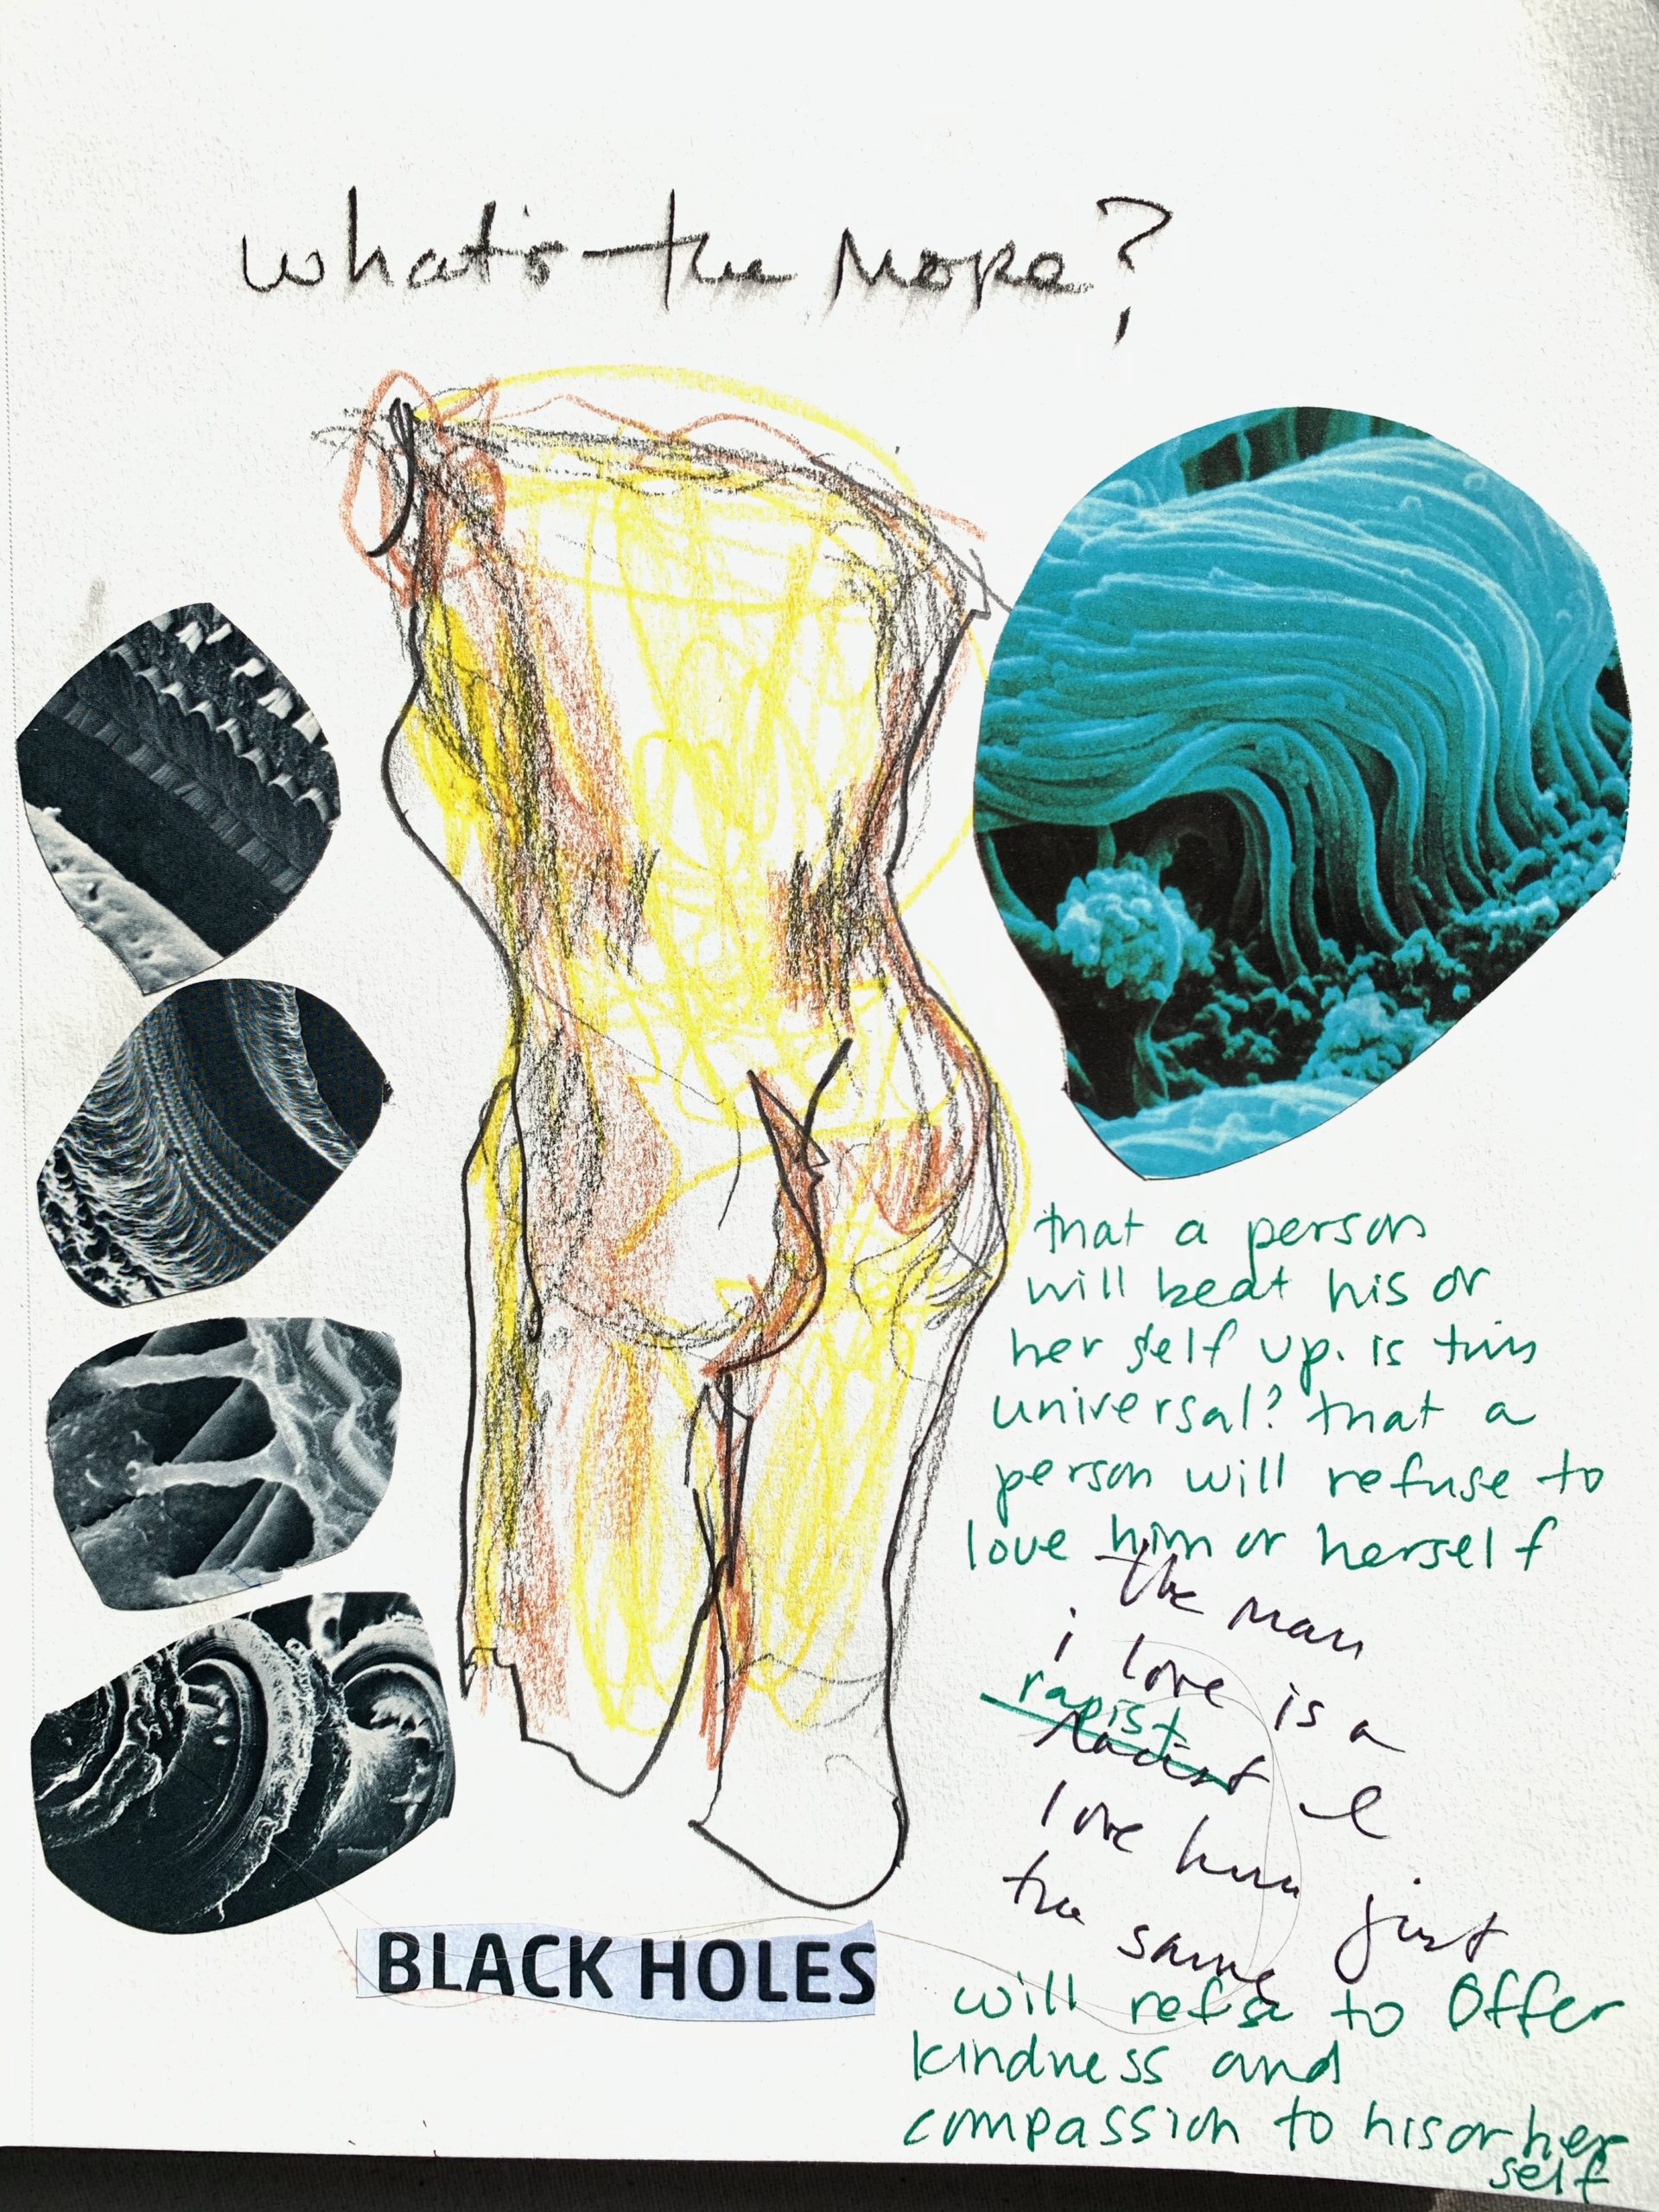 what's the
that a person
will beat his or
her self up. is this
universal? that a
person will refuse to
love him or herself
the man
i love is a
rapist
racist I
love him just
the same
BLACK HOLES
will refse to Offer
kindness and
compassion to his or her
self